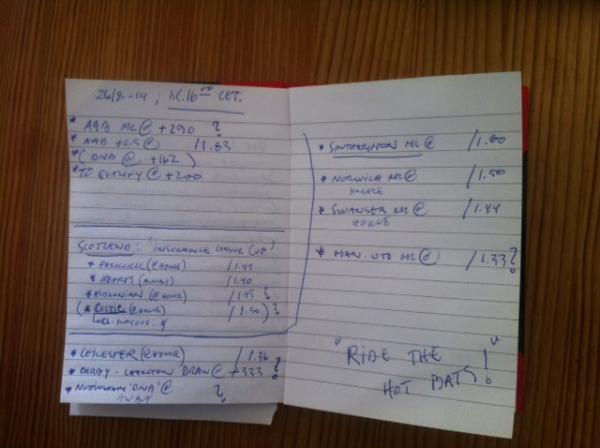 26/8-14 ; kl.16 00 CET.
* AAB ML @ +290 ?
* AAB +0.5 @ /1.83
* ( DNB @ +162 )
* TO QUALIFY @ +200
SCOTLAND: "INSURANCE LEAGUE CUP"
* FALKIRK (@HOME) /1.44
* HEARTS (AWAY) /1.40
* HIBERNIAN (@HOME) ?
( * CELTIC (@HOME) /1.50 ) ?
CL. PLAYOFF
* LEICESTER (@HOME) /1.36
* DERBY - CHARLTON DRAW @ +333 ?
* "DNB" @ ?
AWAY
* SOUTHAMPTON ML @ /1.80
* NORWICH ML @ /1.50
HOME
* SWANSEA ML @ /1.44
HOME
* MAN. UTD ML @ /1.33 ?
"RIDE THE
HOT BATS!"